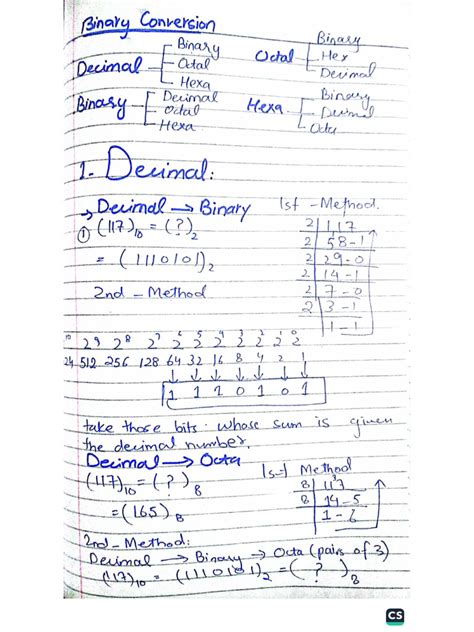 Binary Conversion
Decimal Binary Octal Hexa
Octal Binary Hex Decimal
Binary Decimal Octal Hexa
Hexa Binary Decimal Octa
1- Decimal:
→ Decimal → Binary 1st - Method.
① (117)₁₀ = (?)₂
= (1110101)₂
2 | 117
2 | 58-1
2 | 29-0
2 | 14-1
2 | 7-0
2 | 3-1
1-1
2nd - Method
2⁹ 2⁸ 2⁷ 2⁶ 2⁵ 2⁴ 2³ 2² 2¹ 2⁰
512 256 128 64 32 16 8 4 2 1
↓ ↓ ↓ ↓ ↓ ↓ ↓
1 1 1 0 1 0 1
take those bits whose sum is given
the decimal number.
Decimal → Octa 1st Method
(117)₁₀ = (?)₈
= (165)₈
8 | 117
8 | 14-5
1-6
2nd - Method:
Decimal → Binary → Octa (pairs of 3)
(117)₁₀ = (1110101)₂ = (?)₈
CS